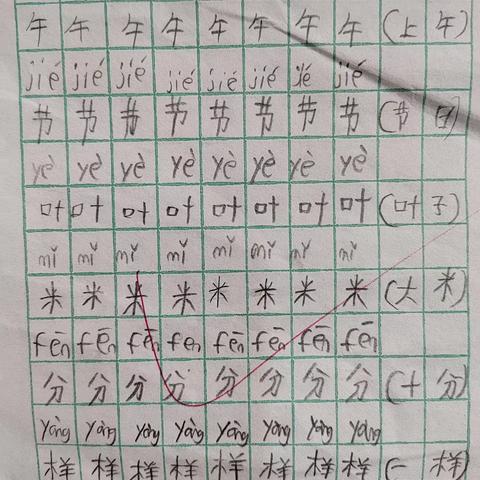 午 午 午 午 午 午 午 午 (上 午)
jié jié jié jié jié jié jié jié
节 节 节 节 节 节 节 节 (节 日)
yè yè yè yè yè yè yè yè
叶 叶 叶 叶 叶 叶 叶 叶 (叶 子)
mǐ mǐ mǐ mǐ mǐ mǐ mǐ mǐ
米 米 米 米 米 米 米 米 (大 米)
fēn fēn fēn fēn fēn fēn fēn fēn
分 分 分 分 分 分 分 分 (十 分)
yàng yàng yàng yàng yàng yàng yàng yàng
样 样 样 样 样 样 样 样 (一 样)